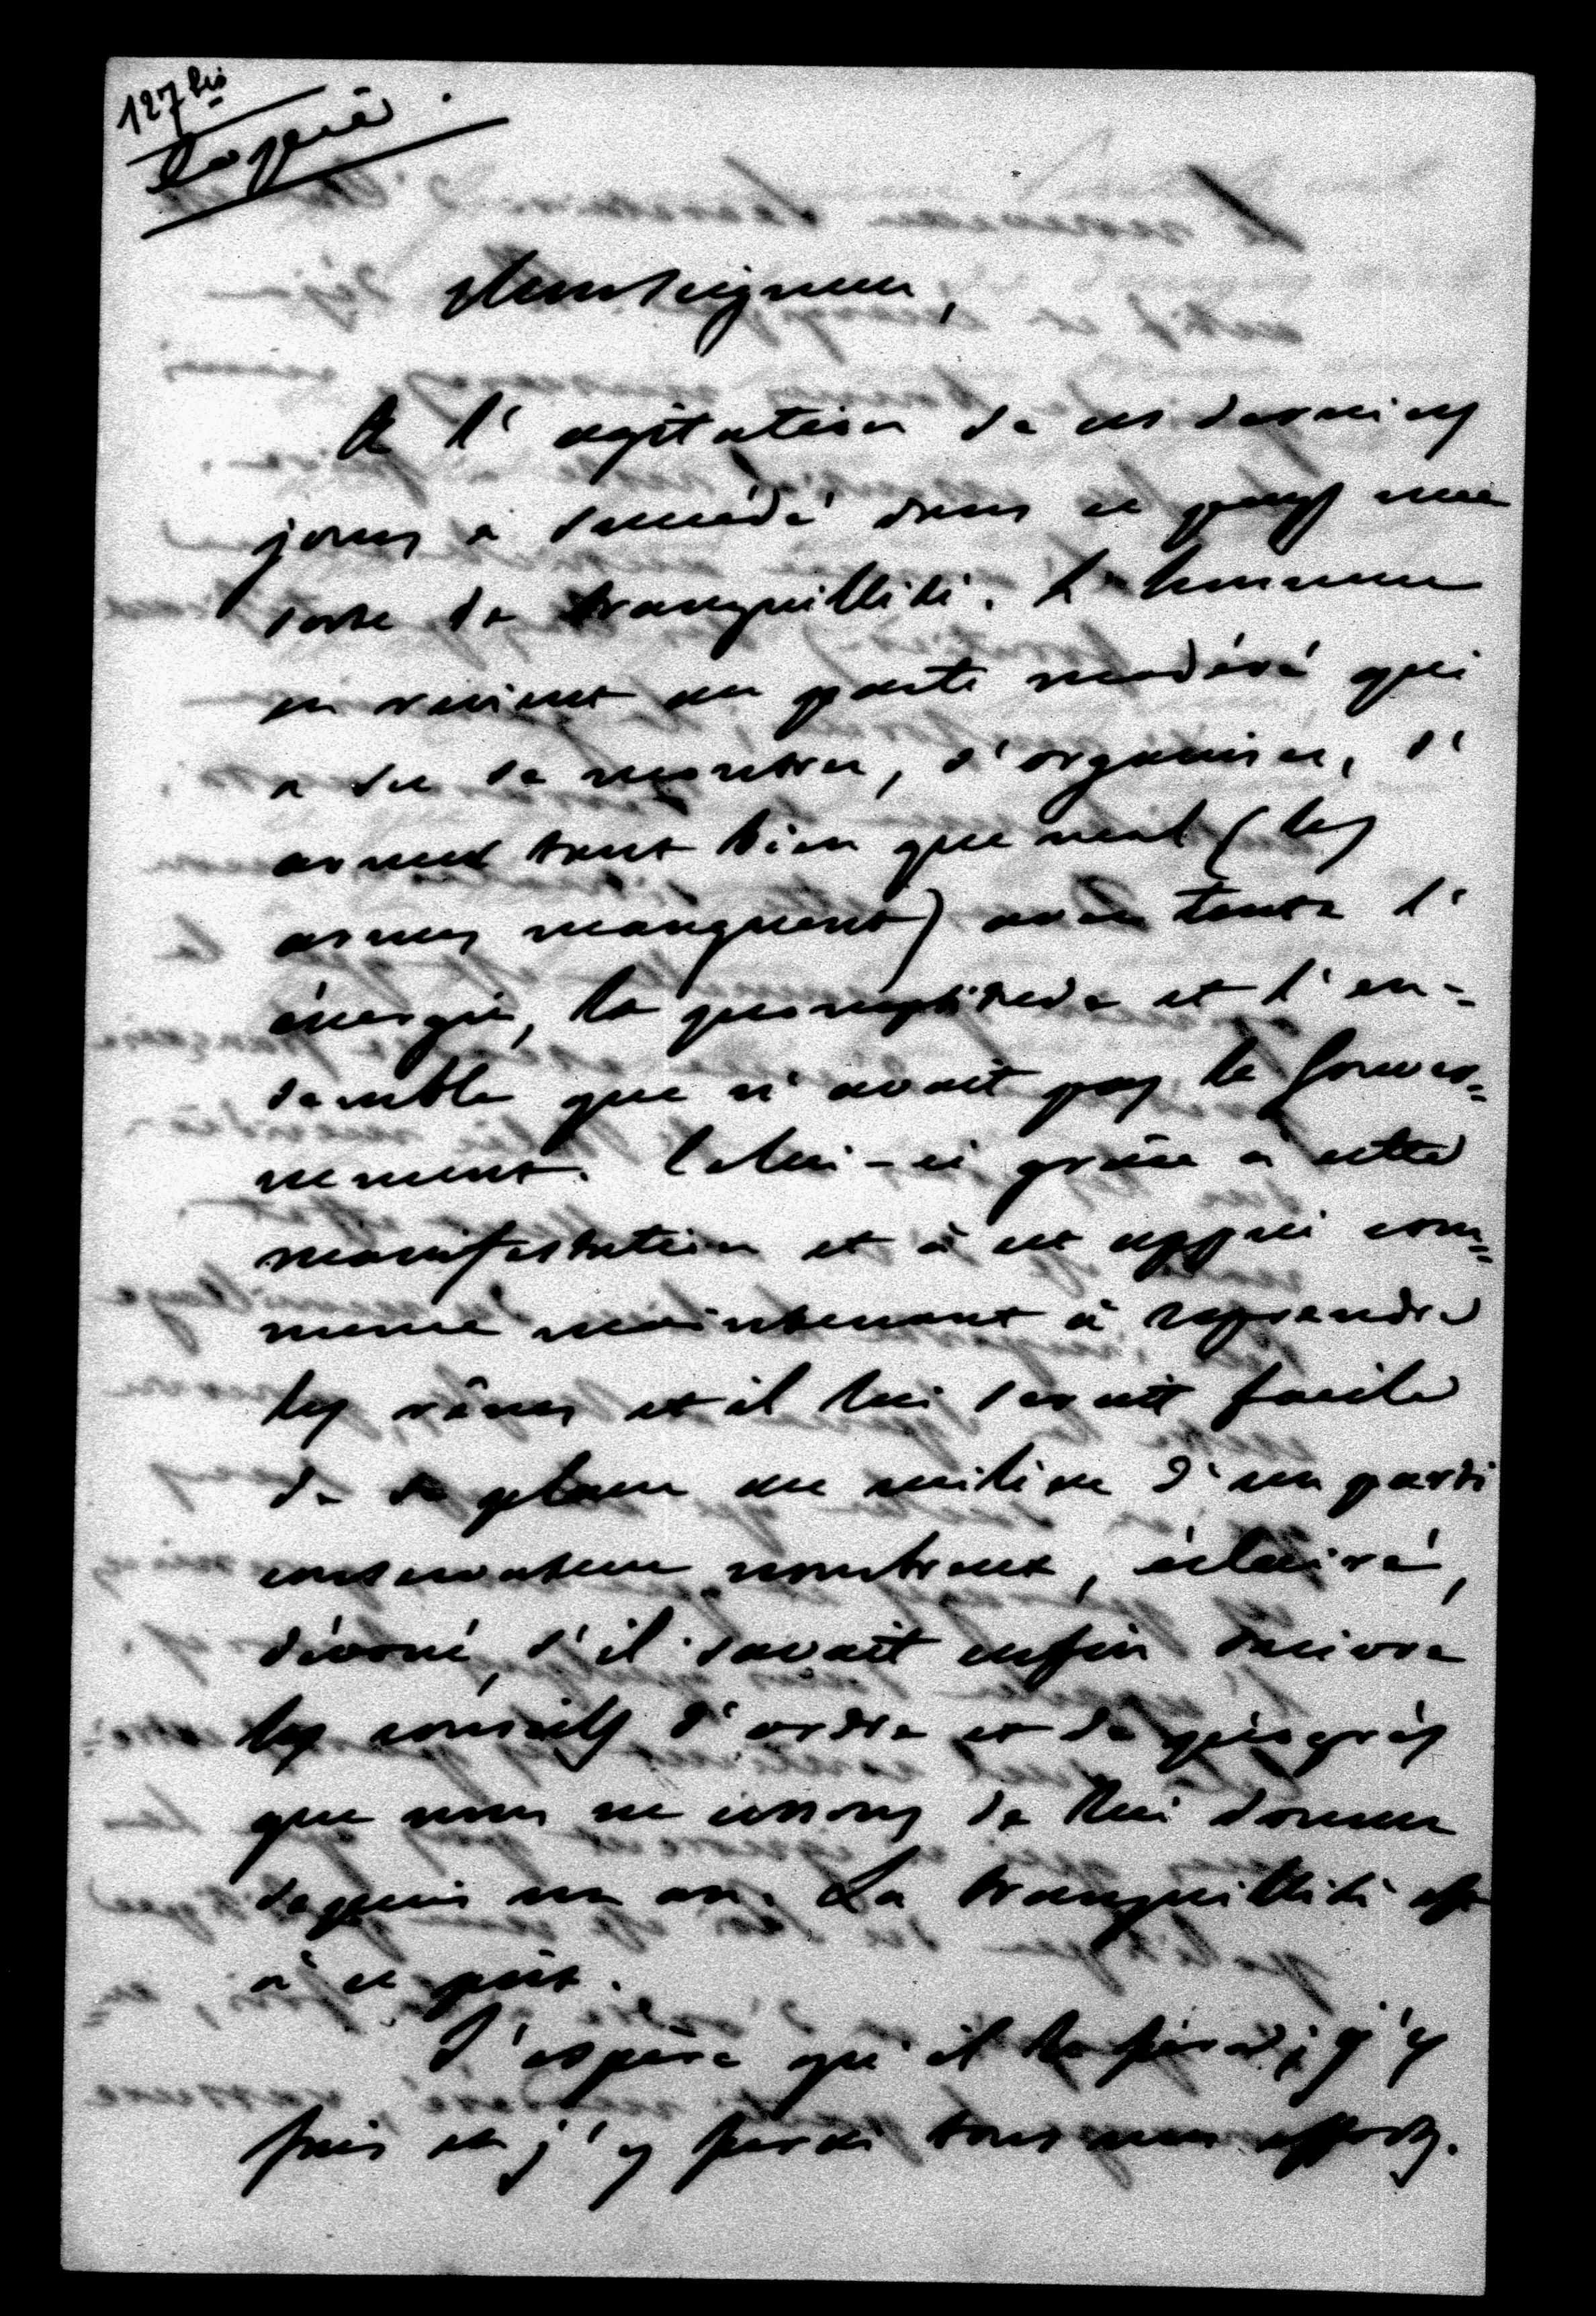 127 bis
Copié.
Monseigneur,
A l'agitation de ces derniers
jours a succédé dans ce pays une
sorte de tranquillité. L'honneur
en revient au parti modéré qui
a su se montrer, s'organiser, s'
armer tant bien que mal (les
armes manquent) avec toute l'
énergie, la promptitude et l'en-
semble que n'avait pas le Gouver=
nement. Celui-ci grâce à cette
manifestation et à cet appui com=
mence maintenant à reprendre
les rênes et il lui serait facile
de se placer au milieu d'un parti
conservateur nombreux, éclairé,
dévoué, s'il savait enfin suivre
les conseils d'ordre et de progrès
que nous ne cessons de lui donner
depuis un an. La tranquillité est
à ce prix.
J'espère qu'il le fera; j'y
fais et j'y ferai tous mes efforts.